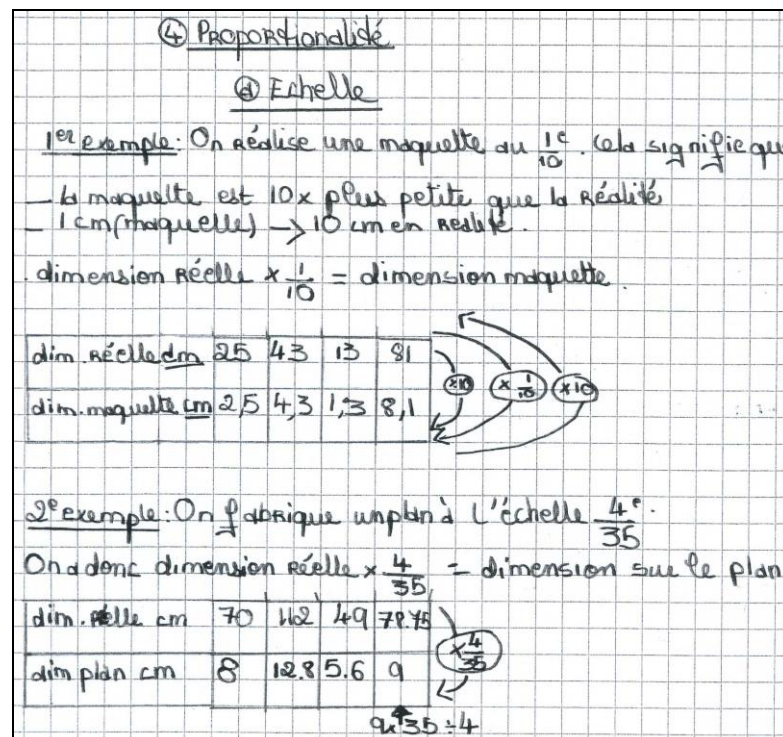 ④ PROPORtionalité
ⓓ Echelle
1er exemple: On Réalise une maquette au 1e/10. Cela signifie que
_ la maquette est 10x plus petite que la Réalité
_ 1 cm (maquette) -> 10 cm en Réalité.
. dimension Réelle x 1/10 = dimension maquette.
dim. Réelle cm 25 43 13 81
dim. maquette cm 2,5 4,3 1,3 8,1
÷10 x 1/10 x10
2e exemple: On fabrique un plan à l'échelle 4e/35.
On a donc dimension Réelle x 4/35 = dimension sur le plan
dim. Réelle cm 70 112 49 78.75
dim plan cm 8 12.8 5.6 9
x 4/35
9x35÷4